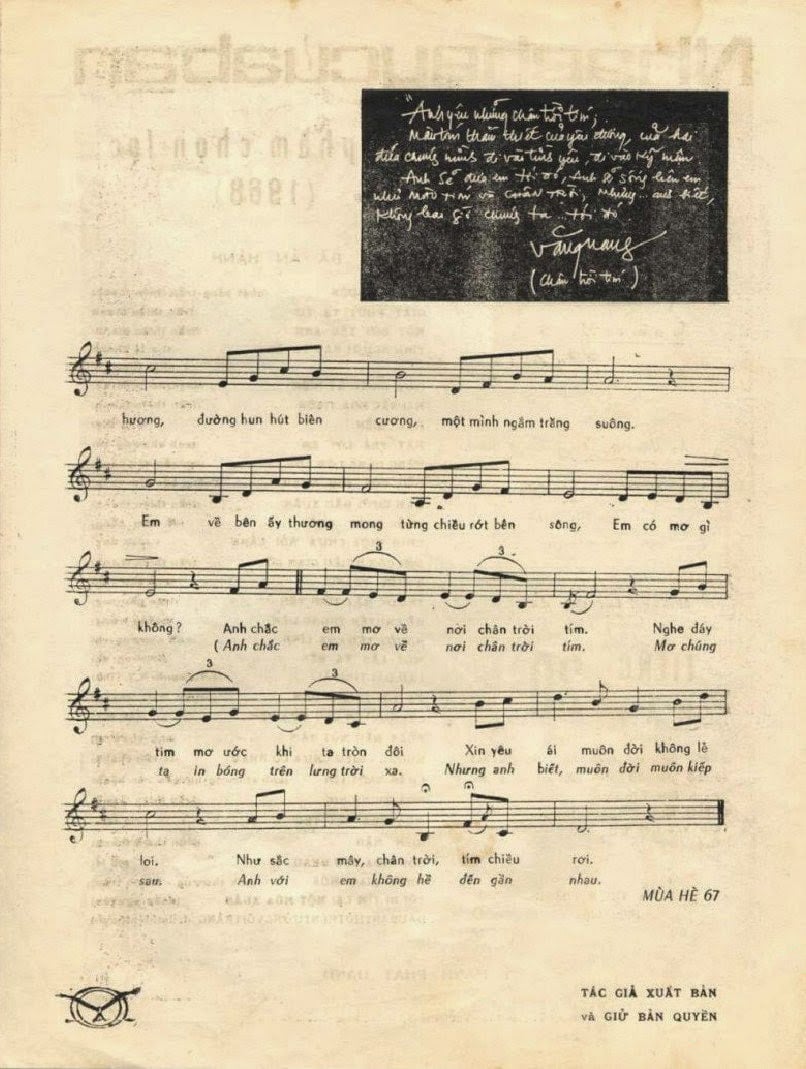 "Anh yêu những chân trời tím,
Màu tím tha thiết của yêu đương, của hai
đứa chúng mình đi vào tình yêu, đi vào kỷ niệm
Anh sẽ đưa em tới đó, Anh sẽ sống bên em
như màu tím và chân trời, nhưng... anh biết,
không bao giờ chúng ta tới đó
Văn Quang
(Chân trời tím)
hương, đường hun hút biên cương, một mình ngắm trăng suông.
Em về bên ấy thương mong từng chiều rớt bên sông, Em có mơ gì
3 3
không? Anh chắc em mơ về nơi chân trời tím. Nghe đáy
(Anh chắc em mơ về nơi chân trời tím. Mơ chúng
3 3
tim mơ ước khi ta tròn đôi Xin yêu ái muôn đời không lẻ
ta in bóng trên lưng trời xa. Nhưng anh biết, muôn đời muôn kiếp
loi. Như sắc mây, chân trời, tím chiều rơi.
sau. Anh với em không hề đến gần nhau.
MÙA HÈ 67
TÁC GIẢ XUẤT BẢN
và GIỮ BẢN QUYỀN